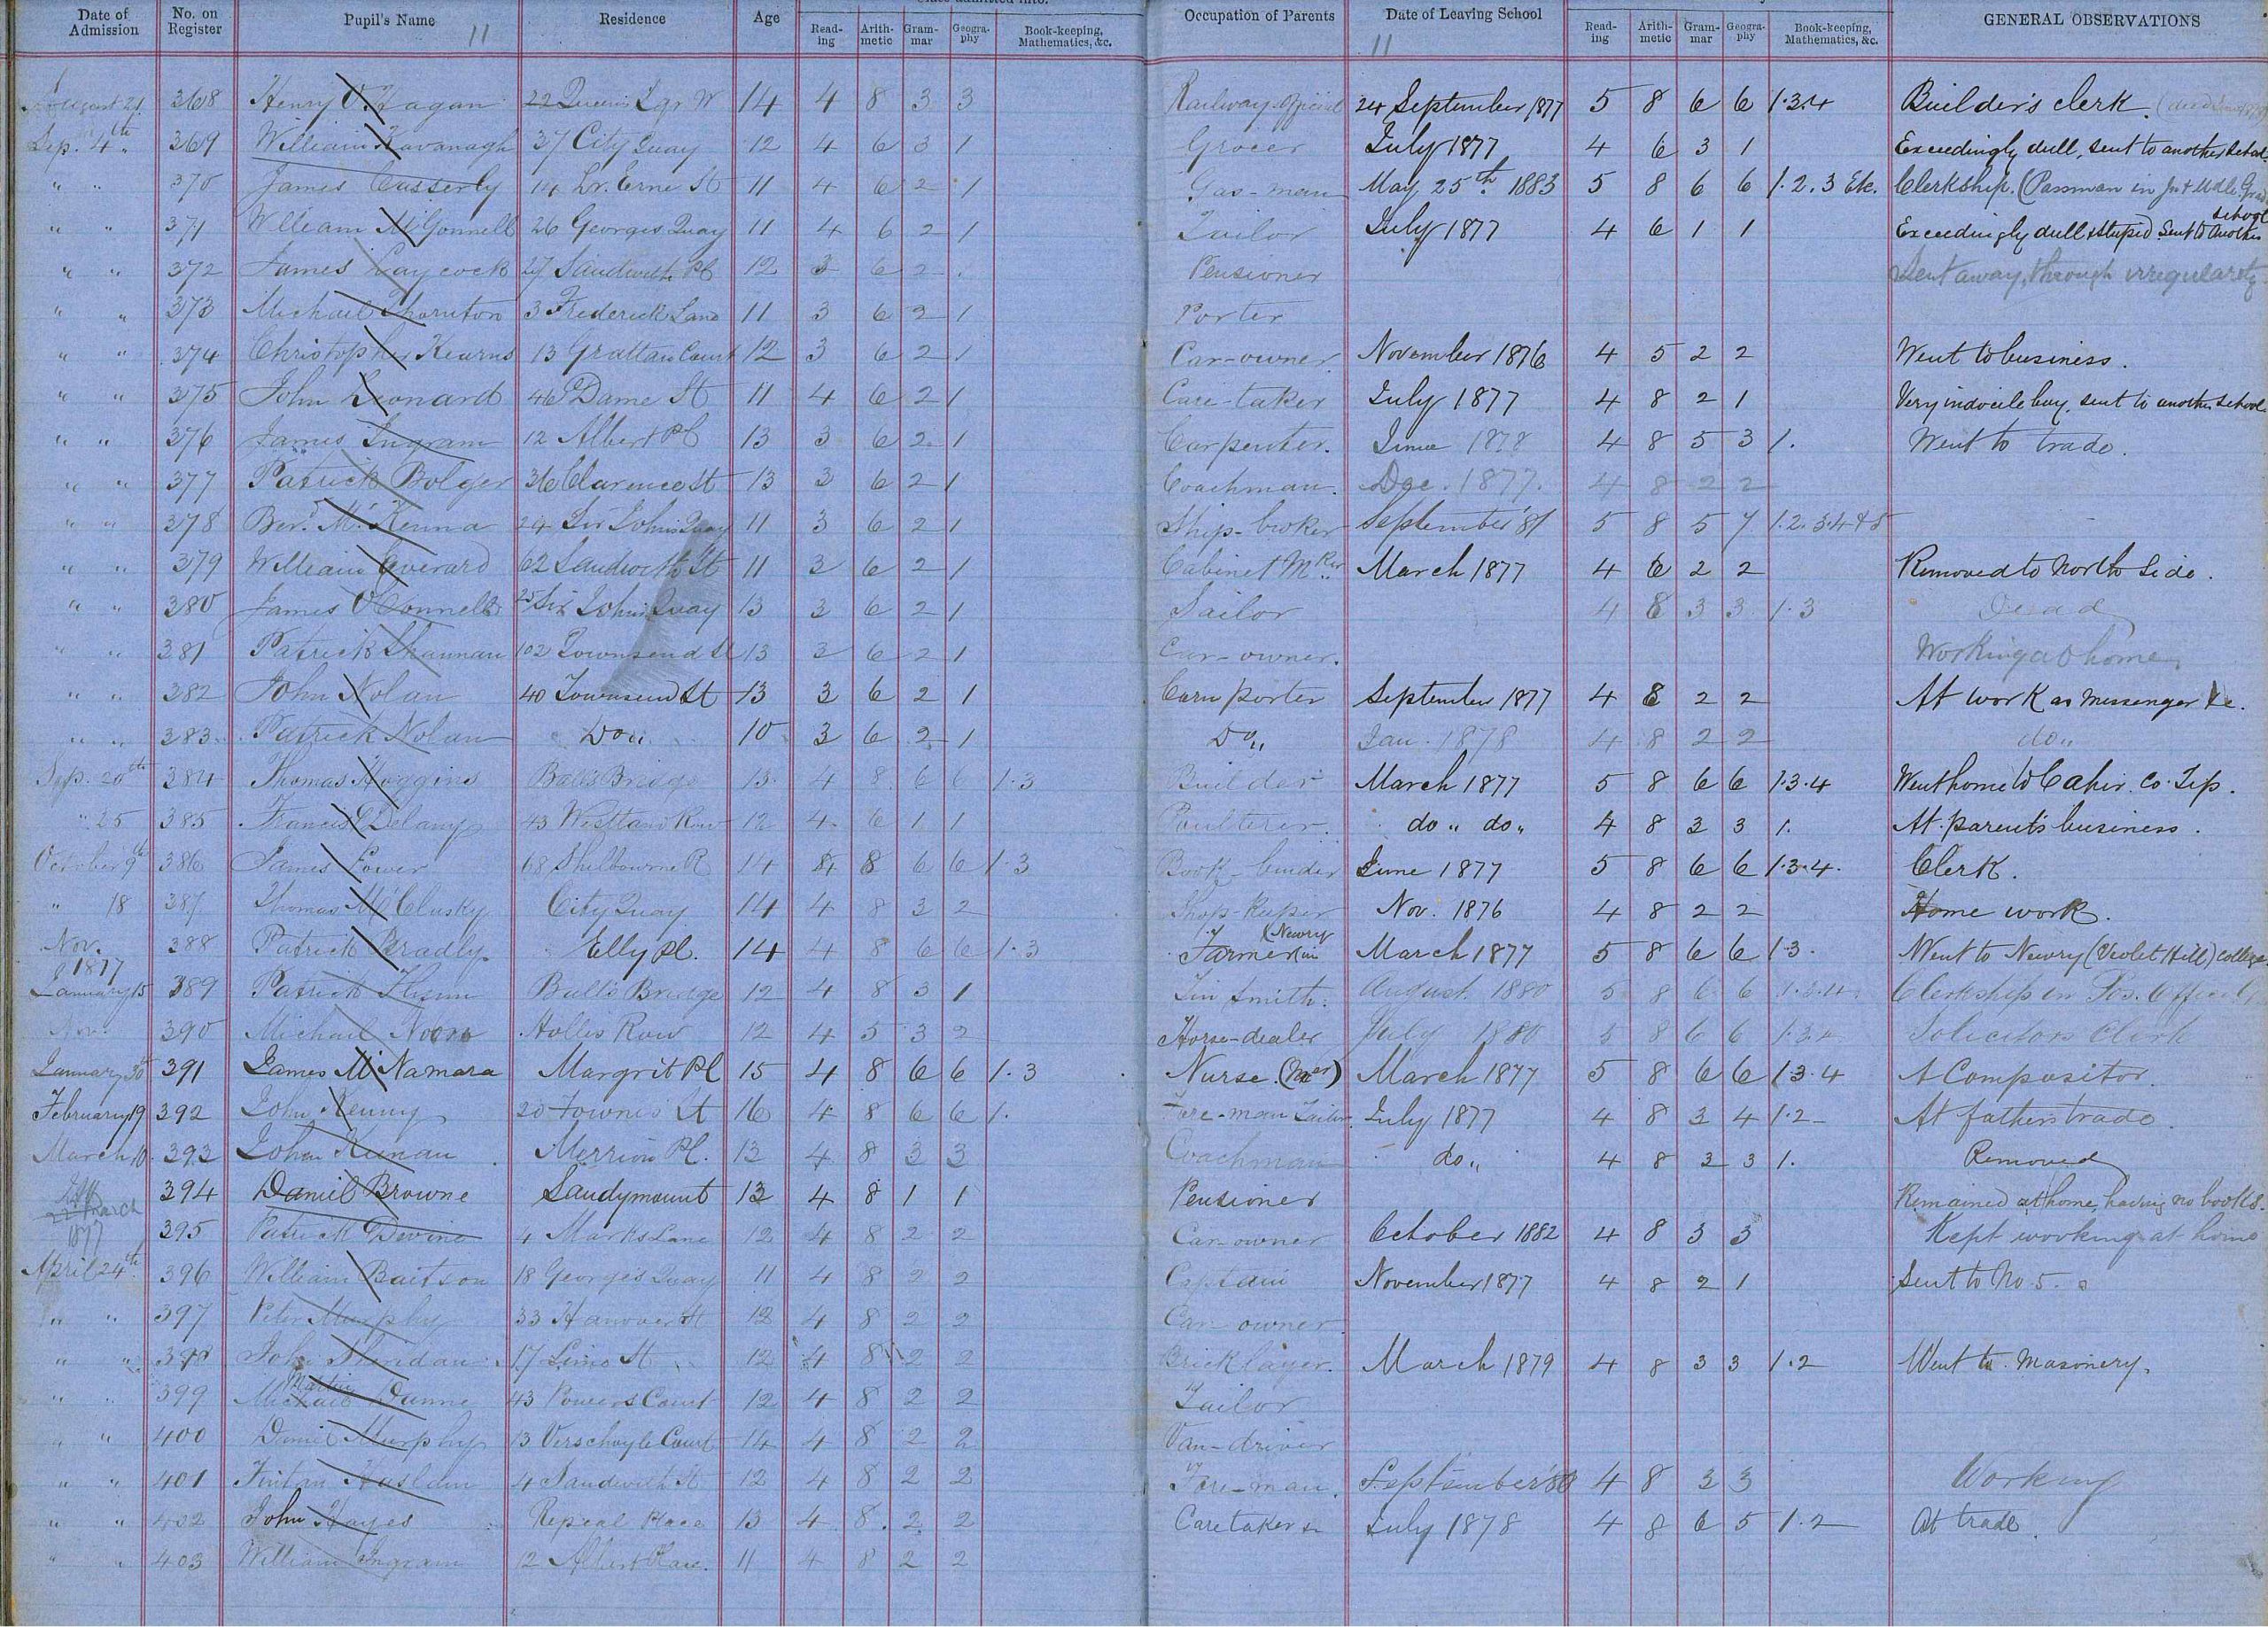 Date of Admission No. on Register Pupil's Name Residence Age Reading Arithmetic Grammar Geography Book-keeping, Mathematics, &c. Occupation of Parents Date of Leaving School Reading Arithmetic Grammar Geography Book-keeping, Mathematics, &c. GENERAL OBSERVATIONS
11 11
August 21 368 Henry O'Hagan 22 Queen's Sqr W 14 4 8 3 3 Railway Official 24 September 1877 5 8 6 6 1.3.4 Builder's clerk.
Sep. 4th 369 William Kavanagh 37 City Quay 12 4 6 3 1 Grocer July 1877 4 6 3 1 Exceedingly dull, sent to another School
" " 370 James Casserly 14 Lr. Erne St 11 4 6 2 1 Gas-man May 25th 1883 5 8 6 6 1.2.3 Etc. Clerkship. (Passman in Jr & Mdle Grade
" " 371 William McGonnell 26 Georges Quay 11 4 6 2 1 Tailor July 1877 4 6 1 1 Exceedingly dull & stupid. Sent to another school
" " 372 James Laycock 27 Sandwith Pl 12 3 6 2 . Pensioner Sent away, through irregularity
" " 373 Michael Thornton 3 Frederick Lane 11 3 6 2 1 Porter
" " 374 Christopher Kearns 13 Grattan Court 12 3 6 2 1 Car-owner November 1876 4 5 2 2 Went to business.
" " 375 John Leonard 46 Dame St 11 4 6 2 1 Care-taker July 1877 4 8 2 1 Very indocile boy, sent to another School
" " 376 James Ingram 12 Albert Pl 13 3 6 2 1 Carpenter. June 1878 4 8 5 3 1. Went to trade.
" " 377 Patrick Bolger 36 Clarence St 13 3 6 2 1 Coachman. Dec. 1877. 4 8 2 2
" " 378 Bern.d McKenna 24 Sir John's Quay 11 3 6 2 1 Ship-broker September '81 5 8 5 7 1.2.3.4 & 5
" " 379 William Everard 62 Sandwith St 11 3 6 2 1 Cabinet Mker March 1877 4 6 2 2 Removed to North Side.
" " 380 James O'Connell 25 Sir John's Quay 13 3 6 2 1 Sailor 4 8 3 3 1.3 Dead
" " 381 Patrick Shannan 102 Townsend St 13 3 6 2 1 Car-owner. Working at home,
" " 382 John Nolan 40 Townsend St 13 3 6 2 1 Corn porter September 1877 4 8 2 2 At work as messenger &c.
" " 383 Patrick Nolan Do " 10 3 6 2 1 Do " Jan. 1878 4 8 2 2 do "
Sep. 20th 384 Thomas Huggins Balls Bridge 13. 4 8 6 6 1.3 Builder March 1877 5 8 6 6 1.3.4 Went home to Cahir. Co. Tip.
" 25 385 Francis Delany 43 Westland Row 12 4 6 1 1 Poulterer. do " do " 4 8 3 3 1. At parent's business.
October 9th 386 James Power 68 Shelbourne R 14 4 8 6 6 1.3 Book-binder June 1877 5 8 6 6 1.3.4. Clerk.
" 18 387 Thomas McClusky City Quay 14 4 8 3 2 Shop-keeper Nov. 1876 4 8 2 2 Home work.
Nov. 388 Patrick Bradly Elly Pl. 14 4 8 6 6 1.3 Farmer (in Newry March 1877 5 8 6 6 1.3. Went to Newry (Violet Hill) college
1877
January 15 389 Patrick Flynn Ball's Bridge 12 4 8 3 1 Tin Smith. August. 1880 5 8 6 6 1.3.4. Clerkship in Pos. Office
Nov. 390 Michael Hollis Row 12 4 5 3 2 Horse-dealer July 1880 5 8 6 6 1.3.4 Solicitors Clerk
January 30th 391 James McNamara Margrit Pl 15 4 8 6 6 1.3 Nurse. (Mer) March 1877 5 8 6 6 1 3.4 A Compositor.
February 19 392 John Kenny 20 Fownes St 16 4 8 6 6 1. Fore-man Tailor. July 1877 4 8 3 4 1.2 At father's trade.
March 10. 393 John Keenan Merrion Pl. 13 4 8 3 3 Coachman do " 4 8 3 3 1. Removed
22 March 394 Daniel Browne Sandymount 13 4 8 1 1 Pensioner Remained at home, having no books.
1877 395 Patrick Devine 4 Marks Lane 12 4 8 2 2 Car-owner October 1882 4 8 3 3 Kept working at home
April 24th 396 William Baitson 18 George's Quay 11 4 8 2 2 Captain November 1877 4 8 2 1 Sent to No. 5.
" " 397 Peter Murphy 33 Hanover St 12 4 8 2 2 Car-owner
" " 398 John Sheridan 17 Lime St 12 4 8 2 2 Bricklayer. March 1879 4 8 3 3 1.2 Went to Masonery.
" " 399 Michael Martin Dunne 43 Powers Court 12 4 8 2 2 Tailor
" " 400 Daniel Murphy 13 Verschoyle Court 14 4 8 2 2 Van-driver
" " 401 Fintan Haslam 4 Sandwith St 12 4 8 2 2 Fore-man. September '80 4 8 3 3 Working
" " 402 John Hayes Repeal Place 13 4 8 2 2 Caretaker July 1878 4 8 6 5 1.2 At trade.
" " 403 William Ingram 12 Albert Place. 11 4 8 2 2